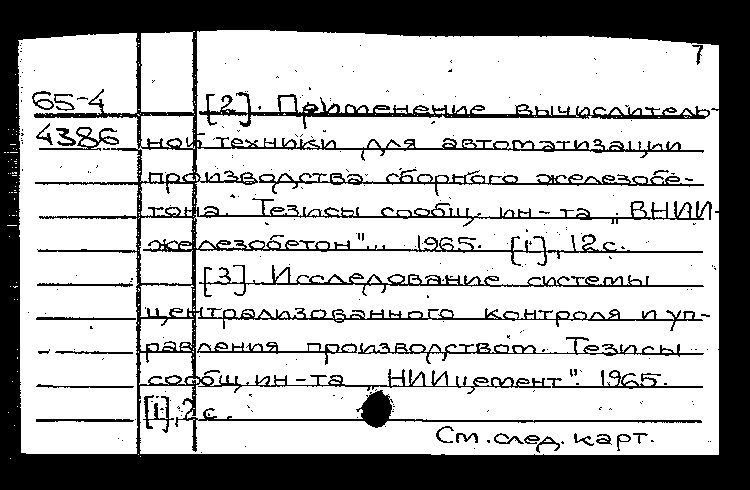 7
65-4 [2]. Применение вычислитель-
4386 ной техники для автоматизации
производства сборного железобе-
тона. Тезисы сообщ. ин-та „ВНИИ-
железобетон"... 1965. [1], 12 с.
[3]. Исследование системы
централизованного контроля и уп-
равления производством. Тезисы
сообщ. ин-та „НИИцемент". 1965.
[1], 2 с.
См. след. карт.